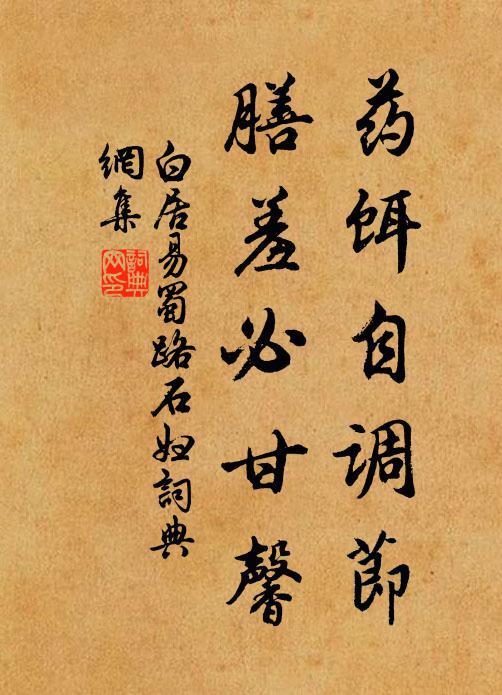 药饵自调节
膳羞必甘馨
白居易蜀路石妇词典
網集
詞典
网印